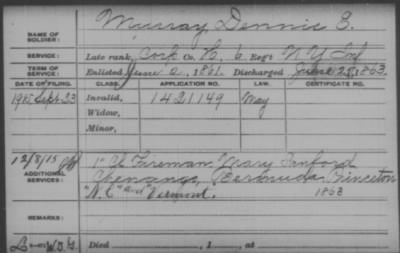 NAME OF SOLDIER: Murray, Dennis E.
SERVICE: Late rank, Corp Co. K, 6 Reg't N Y Inf
TERM OF SERVICE: Enlisted 2, 1861. Discharged June 25, 1863.
DATE OF FILING. CLASS. APPLICATION NO. LAW. CERTIFICATE NO.
1915 Sept. 23 Invalid, 1421149 May
Widow,
Minor,
12/8/15
ADDITIONAL SERVICES: 1" Cl Fireman Navy Sanford
Chenango, Bermuda Princeton
"N.C" and Vermont. 1863
REMARKS:
Died , 1 , at